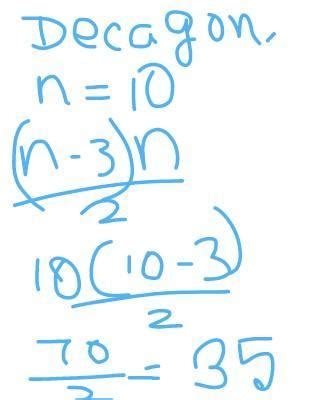 Decagon.
n = 10
(n - 3)n
2
10(10 - 3)
2
70
2 = 35